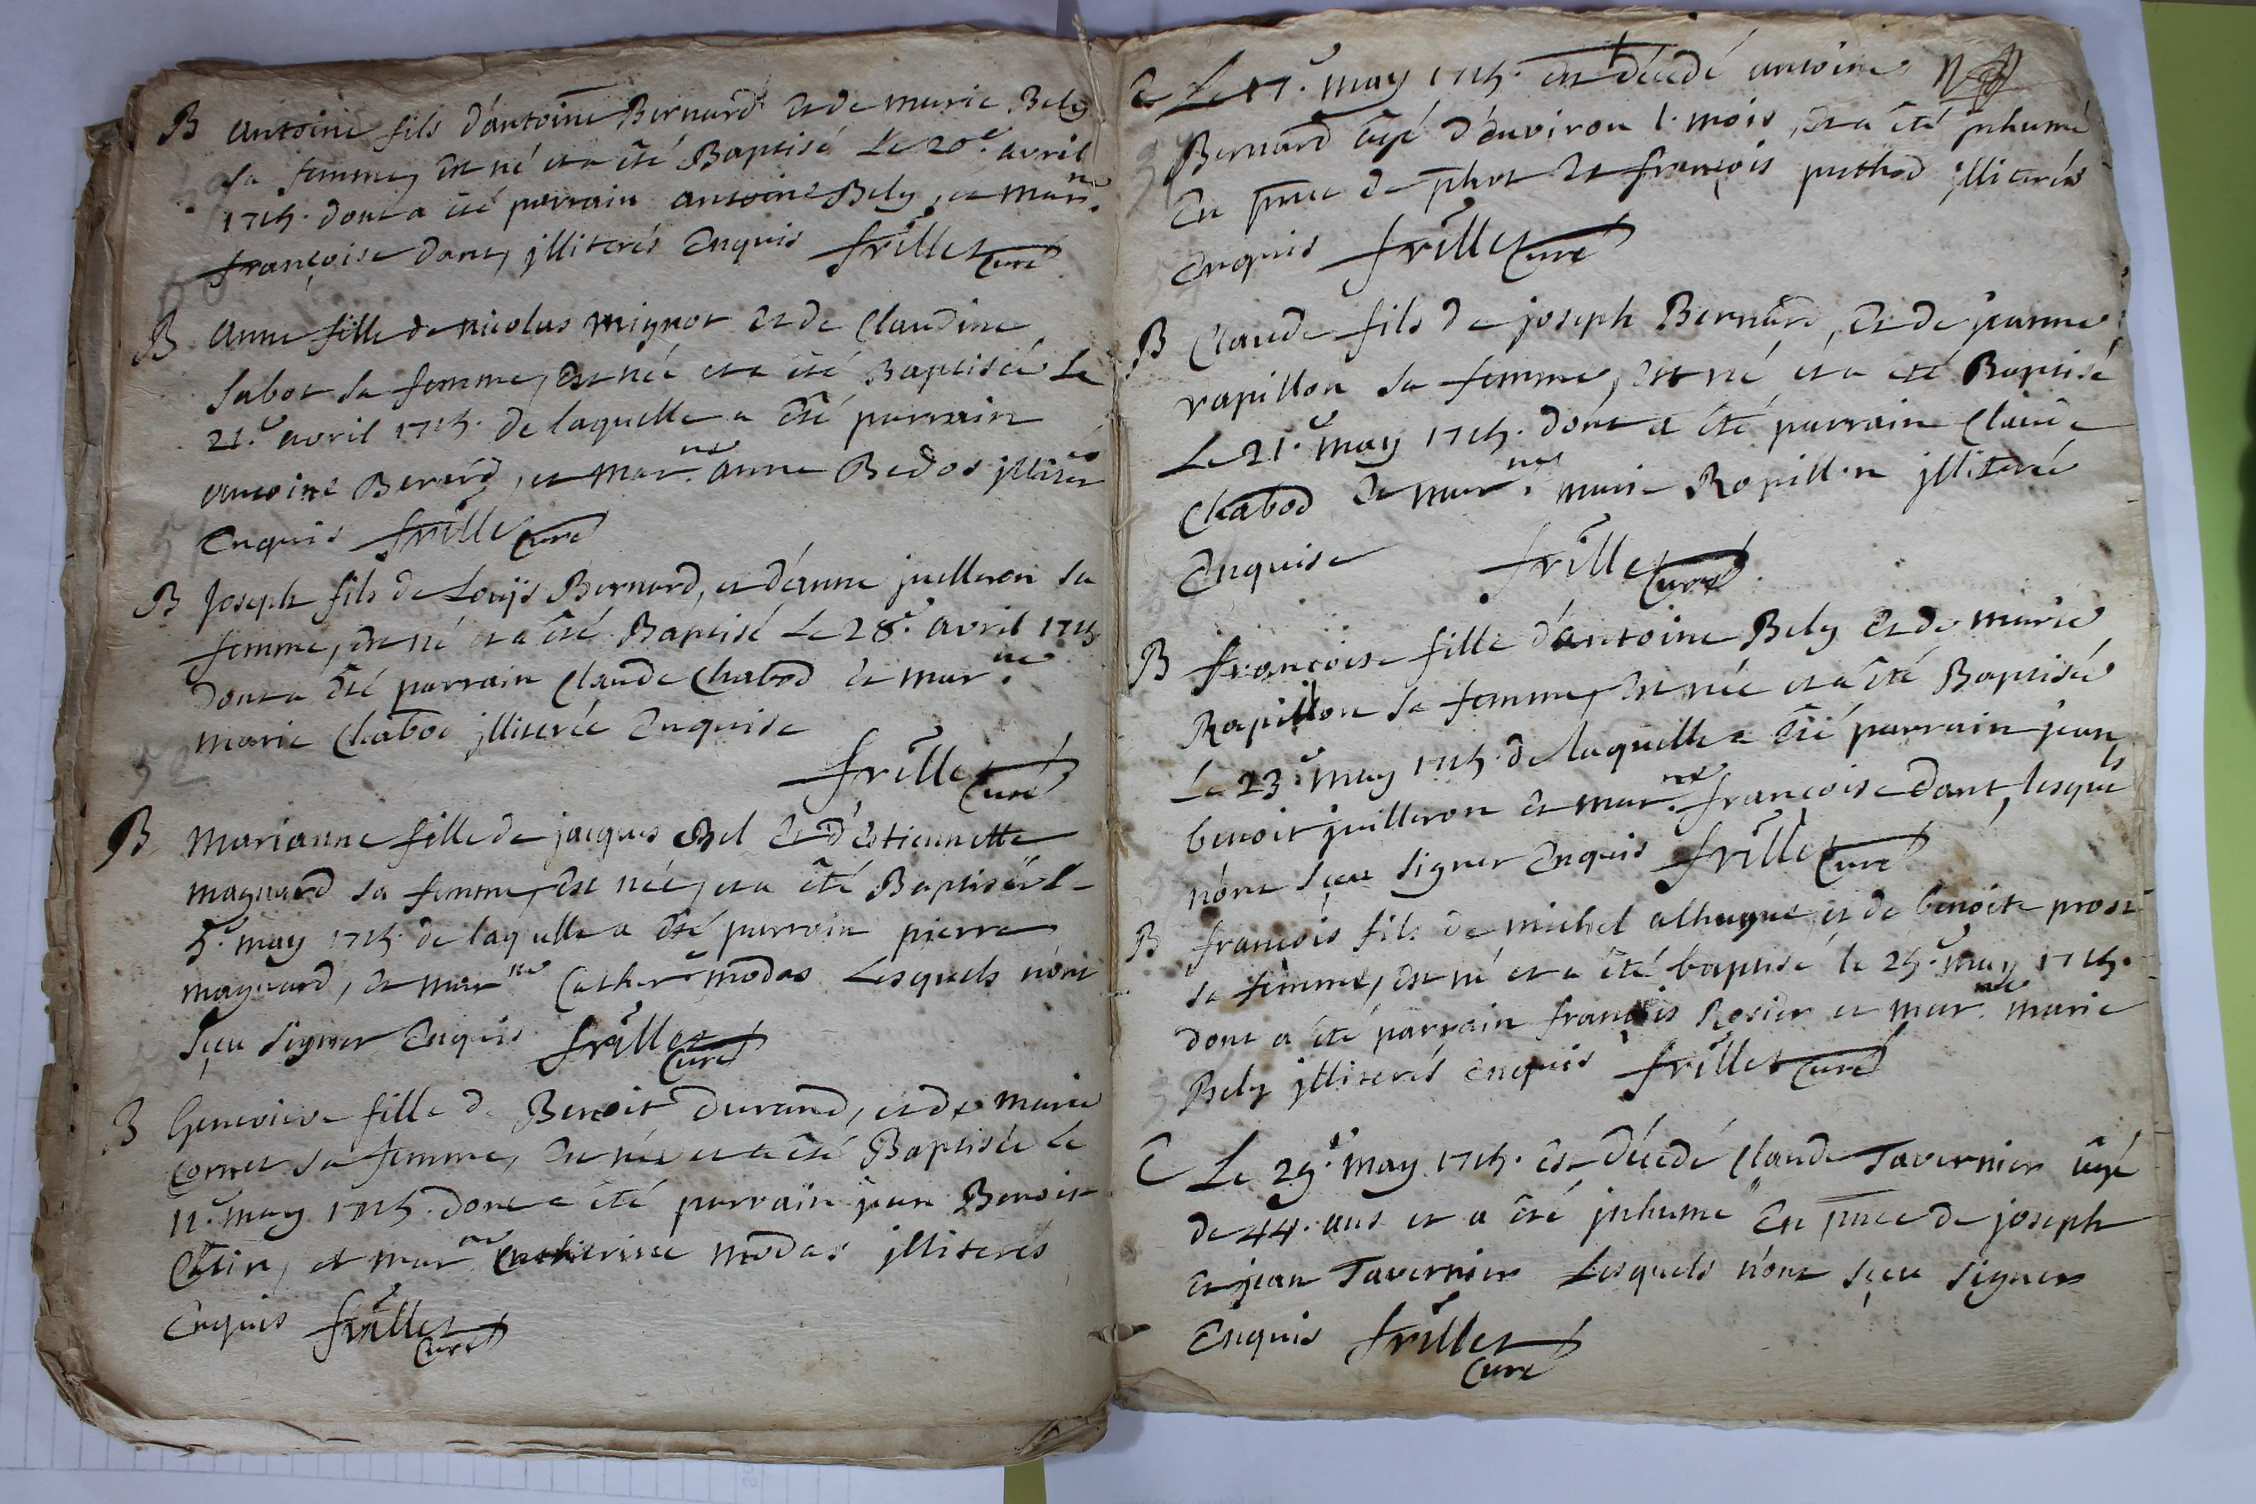 B Antoine fils d'antoine Bernard et de marie Bely
sa femme, est né et a été Baptisé Le 20.e avril
1715. dont a été parrain antoine Bely, et mar.ne
françoise dant, jlliterés Enquis frillet Curé
B anne fille de nicolas mignot et de Claudine
sabot sa femme, est née et a été Baptisée Le
21.e avril 1715. de laquelle a été parrain
antoine Berard, et mar.ne anne Bedos jlliter
Enquis frillet Curé
B Joseph fils de Louÿs Bernard, et d'anne juilleron sa
femme, est né et a été Baptisé Le 28.e avril 1715
dont a été parrain Claude Chabod et mar.ne
marie Chabod jlliterée Enquise
frillet Curé
52
B Marianne fille de jacques Bel et d'Estiennette
magnard sa femme, est née, et a été Baptisée l-
5.e may 1715. de laquelle a été parrain pierre
magnard, et mar.ne Cather.e modas Lesquels n'ont
sçeu signer Enquis frillet Curé
B Genevieve fille de Benoit Durand, et de marie
Cornet sa femme, est née et a été Baptisée Le
11.e may 1715. dont a été parrain jean Benoit
Catin, et mar.ne Catherine modas jlliterés
Enquis frillet Curé
C Le 17.e may 1715. est décedé antoine
Bernard âgé d'environ 1. mois, et a été jnhumé
En pnce de phot et françois puthod jlliterés
Enquis frillet Curé
B Claude fils de joseph Bernard, et de jeanne
rapillon sa femme, est né et a été Baptisé
Le 21.e may 1715. dont a été parrain Claude
Chabod et mar.ne marie Rapillon jlliterée
Enquise frillet Curé
B françoise fille d'antoine Bely et de marie
Rapillon sa femme, est née et a été Baptisée
Le 23.e may 1715. de laquelle a été parrain jean
benoit juilleron et mar.ne françoise dant, lesquels
n'ont sçeu signer Enquis frillet Curé
B françois fils de michel alhugue, et de benoite prost
sa femme, est né et a été baptisé le 25.e may 1715.
dont a été parrain françois Rosier et mar.ne marie
Bely jlliterés Enquis frillet Curé
C Le 29.e may 1715. est décedé Claude Tavernier âgé
de 44. ans et a été jnhumé En pnce de joseph
et jean Tavernier Lesquels n'ont sçeu signer
Enquis frillet Curé